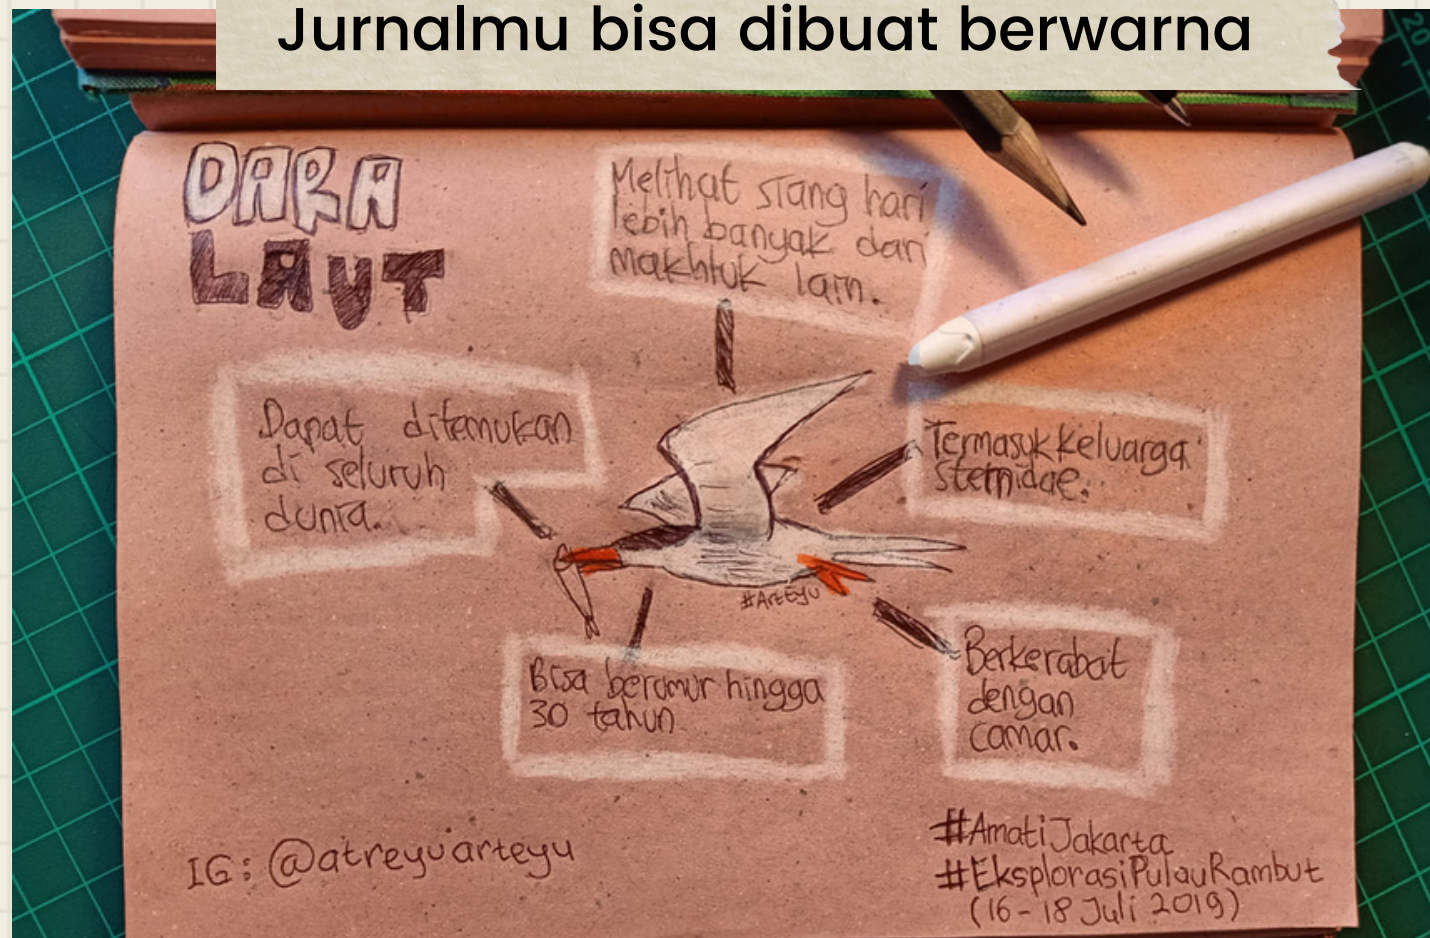 Jurnalmu bisa dibuat berwarna
DARA
LAUT
Melihat siang hari
lebih banyak dari
makhluk lain.
Dapat ditemukan
di seluruh
dunia.
Termasuk keluarga
sternidae.
#ArtEyu
Bisa berumur hingga
30 tahun
Berkerabat
dengan
camar.
IG: @atreyuarteyu
#AmatiJakarta
#EksplorasiPulauRambut
(16-18 Juli 2019)
20